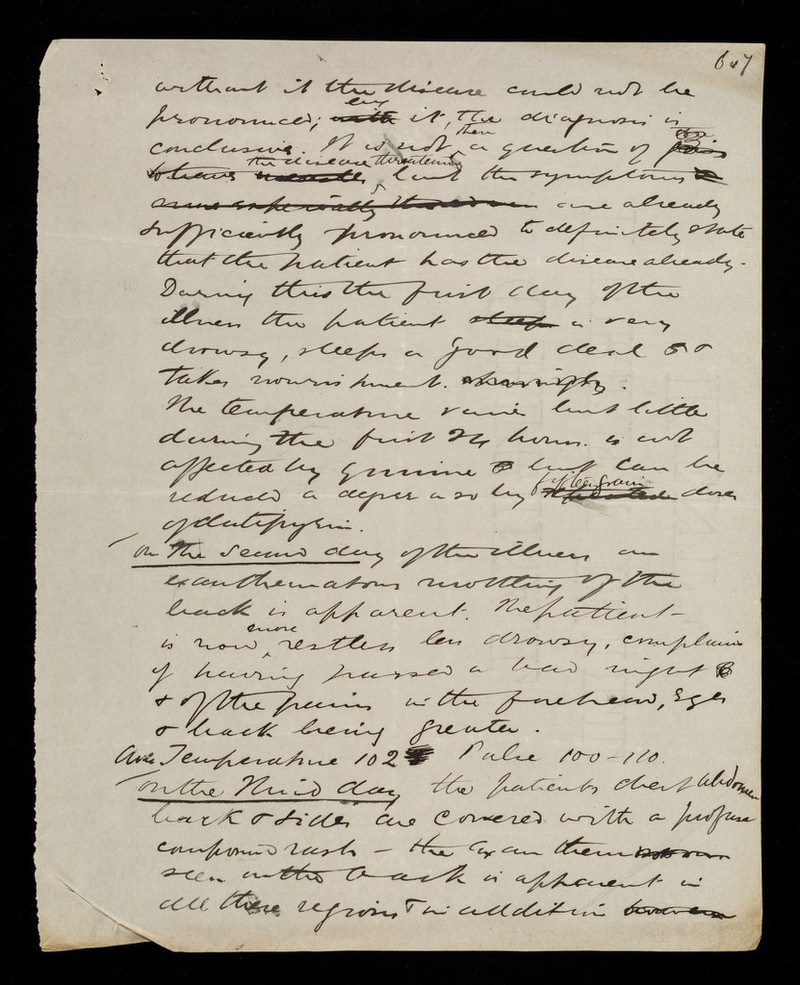 6 & 7
without it the disease could not be
pronounced; by it, the diagnosis is
conclusive. It is not then a question of
the disease threatening, but the symptoms
are already
sufficiently pronounced to definitely state
that the patient has the disease already.
During this the first day of the
illness the patient is very
drowsy, sleeps a good deal &
takes nourishment.
The temperature varies but little
during the first 24 hours. is not
affected by quinine but can be
reduced a degree or so by fifteen grain doses
of Antipyrin.
On the second day of the illness an
exanthematous mottling of the
back is apparent. The patient
is now more restless less drowsy, complains
of having passed a bad night
& of the pains in the forehead, Eyes
& back being greater.
Temperature 102 Pulse 100-110.
On the Third day the patients chest abdomen
back & sides are covered with a profuse
compound rash - the exanthem
seen on the back is apparent in
all these regions & in addition